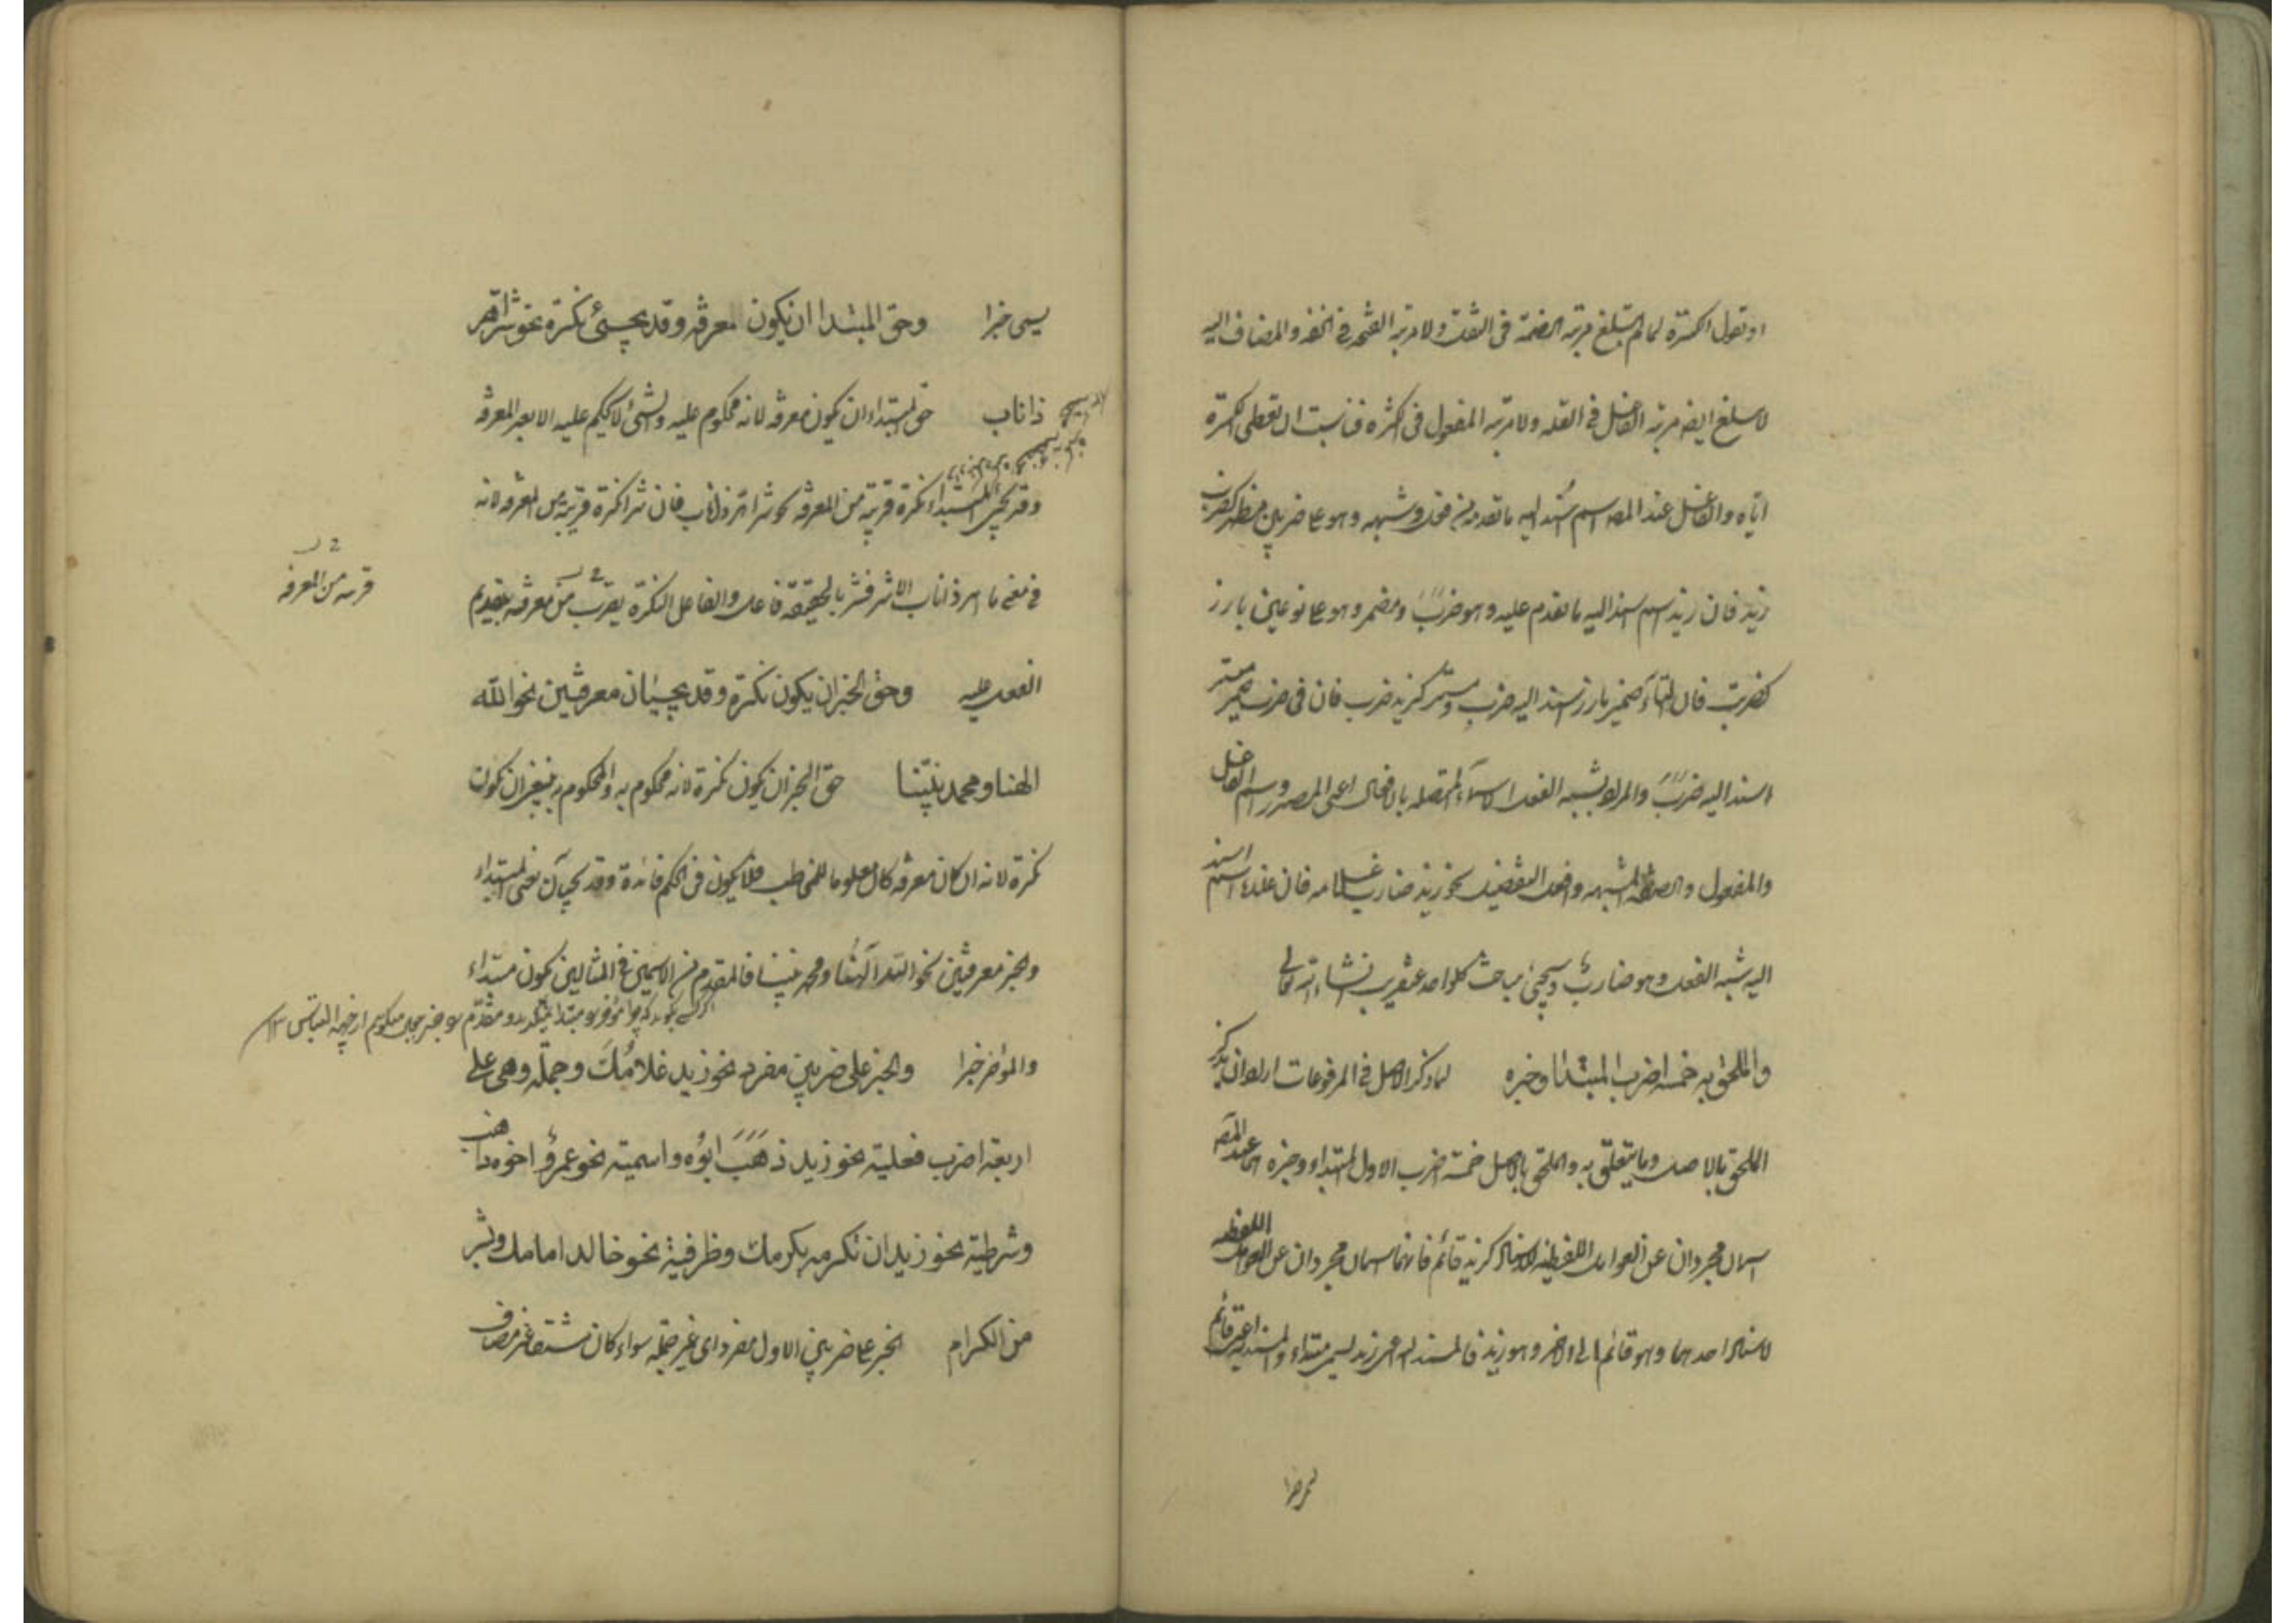 او نقول الكسرة لما لم تبلغ مرتبة الضمة فى الثقل ولا مرتبة الفتحة فى الخفة والمضاف اليه
لا يبلغ ايضا مرتبة الفاعل فى القلة ولا مرتبة المفعول فى الكثرة فناسبت ان تعطى الكسرة
اياه والفاعل عند المصـ اسم اُسند اليه ما تقدمه من فعل وشبهه وهو على ضربين مظهر كضرب
زيد فان زيد اسم اسند اليه ما تقدم عليه وهو ضَرَبَ ومضمر وهو على نوعين بارز
كضربت فان التاء ضمير بارز اسند اليه ضرب ومستتر كزيد ضرب فان فى ضرب ضمير مستتر
اسند اليه ضَرَبَ والمراد بشبه الفعل الاسماء المتصلة بالافعال اعنى المصدر واسم الفاعل
والمفعول والصفة المشبهة وافعل التفضيل نحو زيد ضارب غلامه فان غلامه اسم اسند
اليه شبه الفعل وهو ضاربٌ وسيجئ مباحث كل واحد عنقريب انشاء الله تعالى
والملحق به خمسة اضرب المبتدا وخبره لما ذكر الاصل فى المرفوعات اراد ان يذكر
الملحق بالاصل وما يتعلق به والملحق بالاصل خمسة اضرب الاول المبتداء وخبره هما عند المصـ
اسمان مجردان عن العوامل اللفظية للاسناد كزيد قائم فانهما اسمان مجردان عن العوامل اللفظية
لاسناد احدهما وهو قائم الى الاخر وهو زيد فالمسند اليه اعنى زيد يسمى مبتداء والمسند به اعنى قائم
يسمى خبرا
يسمى خبرا وحق المبتدا ان يكون معرفة وقد يجئ نكرة نحو شر اهر
ذا ناب حق المبتداء ان يكون معرفة لانه محكوم عليه والشئ لا يحكم عليه الا بعد المعرفة
وقد يجئ المبتداء نكرة قريبة من المعرفة نحو شر اهر ذا ناب فان شرا نكرة قريبة من المعرفة لانه
فى معنى ما اهر ذا ناب الا شر فشر بالحقيقة فاعل والفاعل النكرة يقرب من معرفة بتقديم
قريبة من المعرفة
الفعل عليه وحق الخبر ان يكون نكرة وقد يجيئان معرفتين نحو الله
الهنا ومحمد نبينا حق الخبر ان يكون نكرة لانه محكوم به والمحكوم به ينبغى ان يكون
نكرة لانه ان كان معرفة كان معلوما للمخاطب فلا يكون فى الحكم فائدة وقد يجيآن يعنى المبتداء
والخبر معرفتين نحو الله الهنا ومحمد نبينا فالمقدم من الاسمين فى المثالين يكون مبتداء
والمؤخر خبرا والخبر على ضربين مفرد نحو زيد غلامُكَ وجملة وهى على
اربعة اضرب فعلية نحو زيد ذَهَبَ ابُوه واسمية نحو عمرو اخوه ذاهب
وشرطية نحو زيد ان تكرمه يكرمك وظرفية نحو خالد امامك وبشر
من الكرام الخبر على ضربين الاول مفرد اى غير جملة سواء كان مشتقا غير مضاف